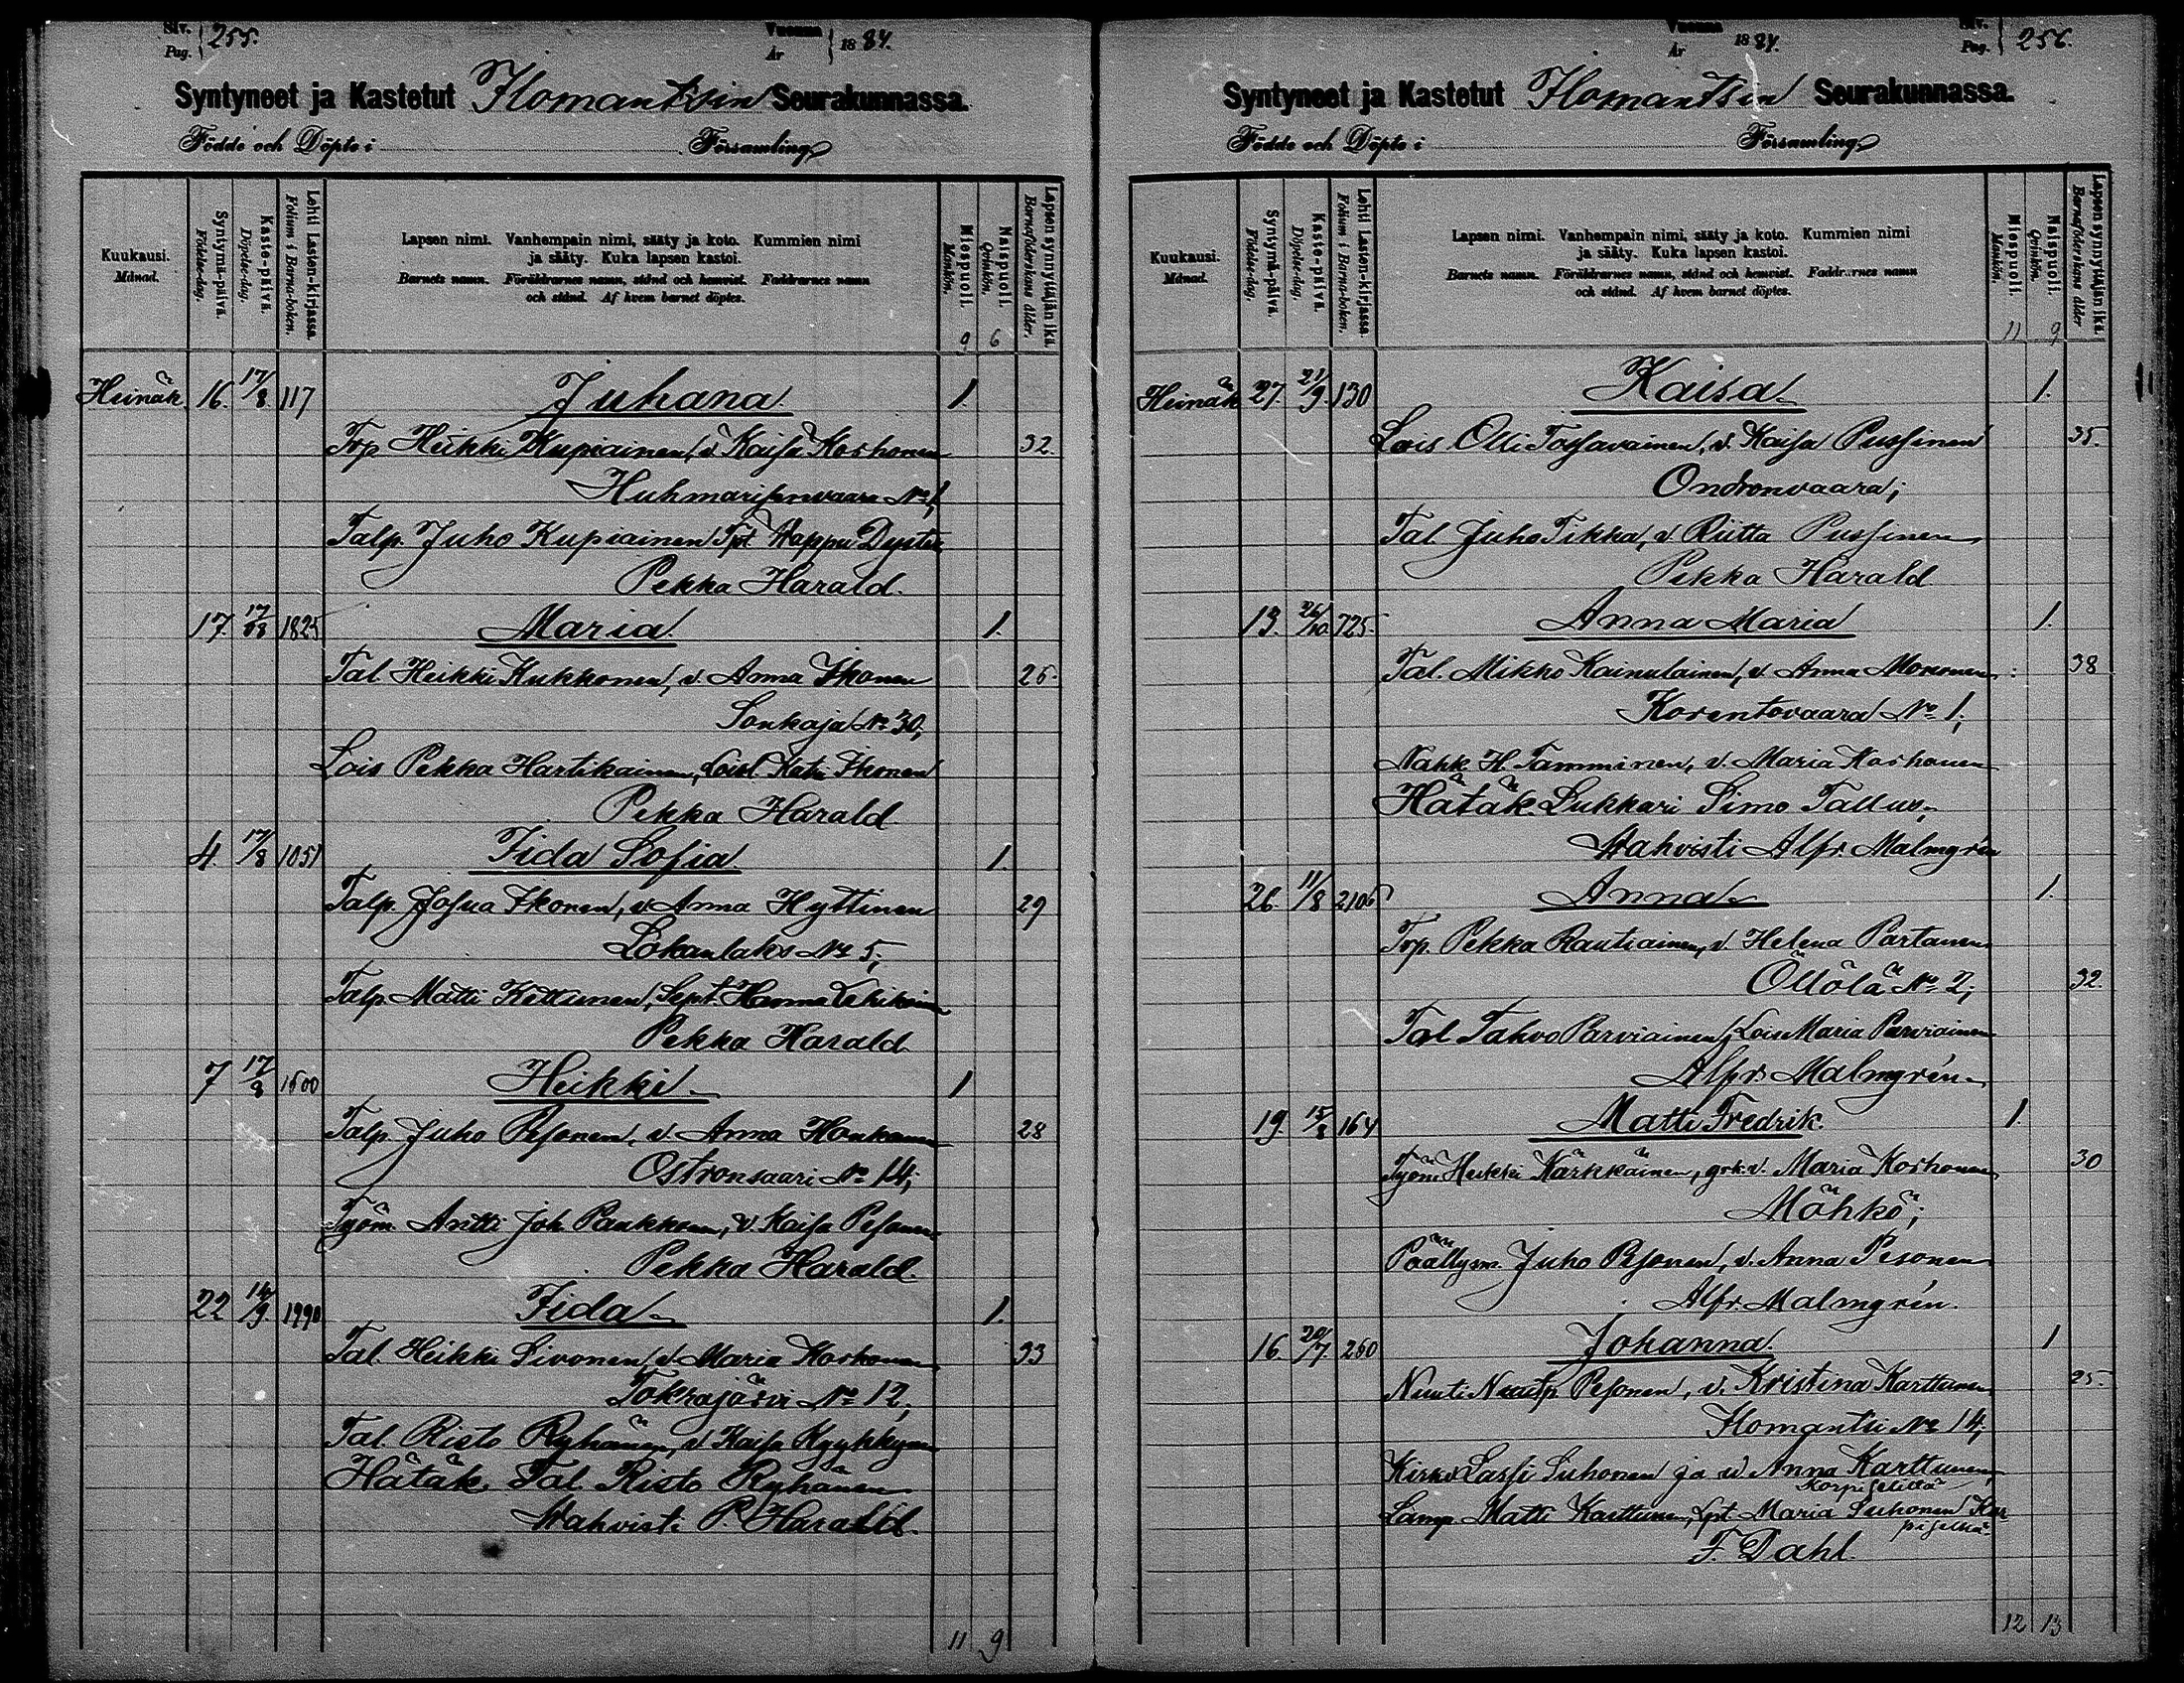 Siv. Pag. 255.
Vuonna År 1884.
Syntyneet ja Kastetut Ilomantsin Seurakunnassa.
Födde och Döpte i Församling
Kuukausi. Månad.
Syntymä-päivä. Födelse-dag.
Kaste-päivä. Döpelse-dag.
Lehti Lasten-kirjassa Folium i Barna-boken.
Lapsen nimi. Vanhempain nimi, sääty ja koto. Kummien nimi
ja sääty. Kuka lapsen kastoi.
Barnets namn. Föräldrarnes namn, stånd och hemvist. Faddrarnes namn
och stånd. Af hvem barnet döptes.
Miespuoli. Mankön.
Naispuoli. Qvinkön.
Lapsen synnyttäjän ikä. Barnaföderskans ålder.
9 6
Heinäk. 16. 17/8 117 Juhana 1.
Trp Heikki Kupiainen, v. Kaisa Korhonen 32.
Huhmarisenvaara No 1,
Talp. Juho Kupiainen Tpt Wappu Dyster
Pekka Harald.
17. 17/8 1825 Maria. 1.
Tal. Heikki Kukkonen, v. Anna Ikonen 25.
Sonkaja No 30,
Lois Pekka Hartikainen, Loisl. Katri Ikonen
Pekka Harald
4. 17/8 1051 Iida Sofia 1.
Talp. Josua Ikonen, v. Anna Hyttinen 29
Lokanlaks No 5,
Talp. Matti Kettunen, Sept. Hanna
Pekka Harald
7 17/8 1500 Heikki 1
Talp. Juho Pesonen, v. Anna Honkanen 28
Ostronsaari No 14;
Työm. Antti Joh. Paukkonen, v. Kaisa Pesonen
Pekka Harald.
22 14/9. 1990 Iida 1.
Tal. Heikki Sivonen, v. Maria Korhonen 33
Tokrajärvi No 12,
Tal. Risto Ryhänen, v. Kaisa
Hätäk. Tal. Risto Ryhänen
Wahvisti P. Harald.
11 9
Vuonna År 1884.
Siv. Pag. 256.
Syntyneet ja Kastetut Ilomantsin Seurakunnassa.
Födde och Döpte i Församling
Kuukausi. Månad.
Syntymä-päivä. Födelse-dag.
Kaste-päivä. Döpelse-dag.
Lehti Lasten-kirjassa Folium i Barna-boken.
Lapsen nimi. Vanhempain nimi, sääty ja koto. Kummien nimi
ja sääty. Kuka lapsen kastoi.
Barnets namn. Föräldrarnes namn, stånd och hemvist. Faddrarnes namn
och stånd. Af hvem barnet döptes.
Miespuoli. Mankön.
Naispuoli. Qvinkön.
Lapsen synnyttäjän ikä. Barnaföderskans ålder
11 9
Heinäk 27. 21/9. 130 Kaisa 1.
Lois Olli Tossavainen, v. Kaisa Pussinen 35.
Ondronvaara;
Tal Juho Tikka, v. Riitta Pussinen
Pekka Harald
13. 26/10. 725. Anna Maria 1.
Tal. Mikko Kainulainen, v. Anna Mononen 38
Korentovaara No 1;
Nahk. H. Tamminen, v. Maria Korhonen
Hätäk. Lukkari Simo Tallus,
Wahvisti Alfr. Malmgrén
26. 11/8 2106 Anna 1.
Trp. Pekka Rautiainen, v. Helena Partanen
Öllölä No 2; 32.
Tal Tahvo Parviainen, Lois Maria Parviainen
Alfr. Malmgrén
19. 15/8 164 Matti Fredrik. 1.
Työm Heikki Kärkkäinen, grk. v. Maria Korhonen 30
Möhkö;
Päällysm. Juho Pesonen, v. Anna Pesonen
Alfr. Malmgrén.
16. 20/7. 260 Johanna. 1
Nuutp Pesonen, v. Kristina Karttunen 25.
Ilomantsi No 14;
Kirkv. Lassi Suhonen ja v Anna Karttunen,
Korpiselkä
Lamp. Matti Karttunen, Lpt. Maria Suhonen Kor
piselkä.
F. Dahl.
12 13